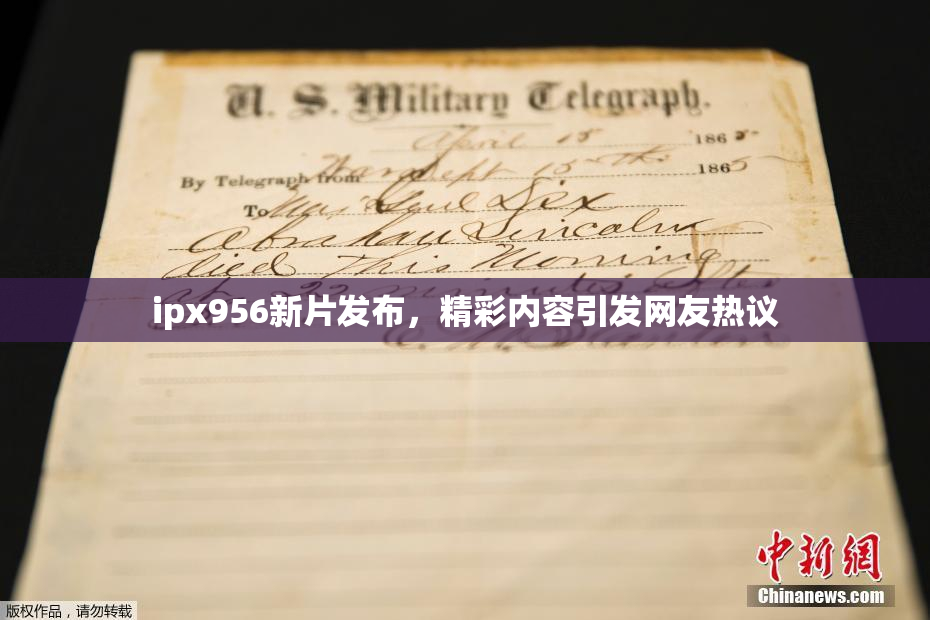 U. S. Military Telegraph.
April 15 1865
By Telegraph from War Dept 15th 1865
To Maj Genl Dix
Abraham Lincoln
died This Morning
at 22 minutes after
ipx956新片发布，精彩内容引发网友热议
E. M. Stanton
中新网
Chinanews.com
版权作品，请勿转载